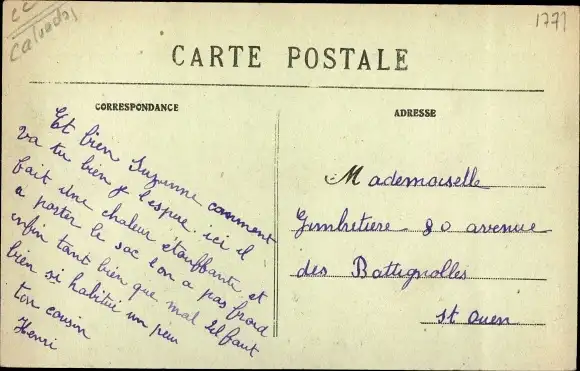 Calvados
1771
CARTE POSTALE
CORRESPONDANCE
ADRESSE
Et bien Suzanne comment
va tu bien je l'espere ici il
fait une chaleur étouffante et
a porter le sac on a pas froid
enfin tant bien que mal il faut
bien si habitué un peu
ton cousin
Henri
Mademoiselle
Gimbretiere 80 avenue
des Battignolles
St Ouen